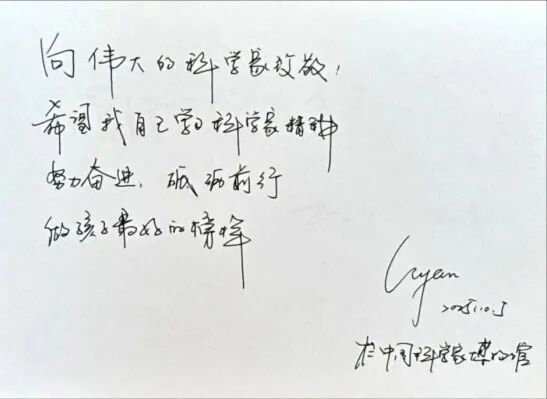 向伟大的科学家致敬！
希望我自己学习科学家精神
努力奋进，砥砺前行
做孩子最好的榜样
Ryan
2025.10.5
于中国科学家博物馆